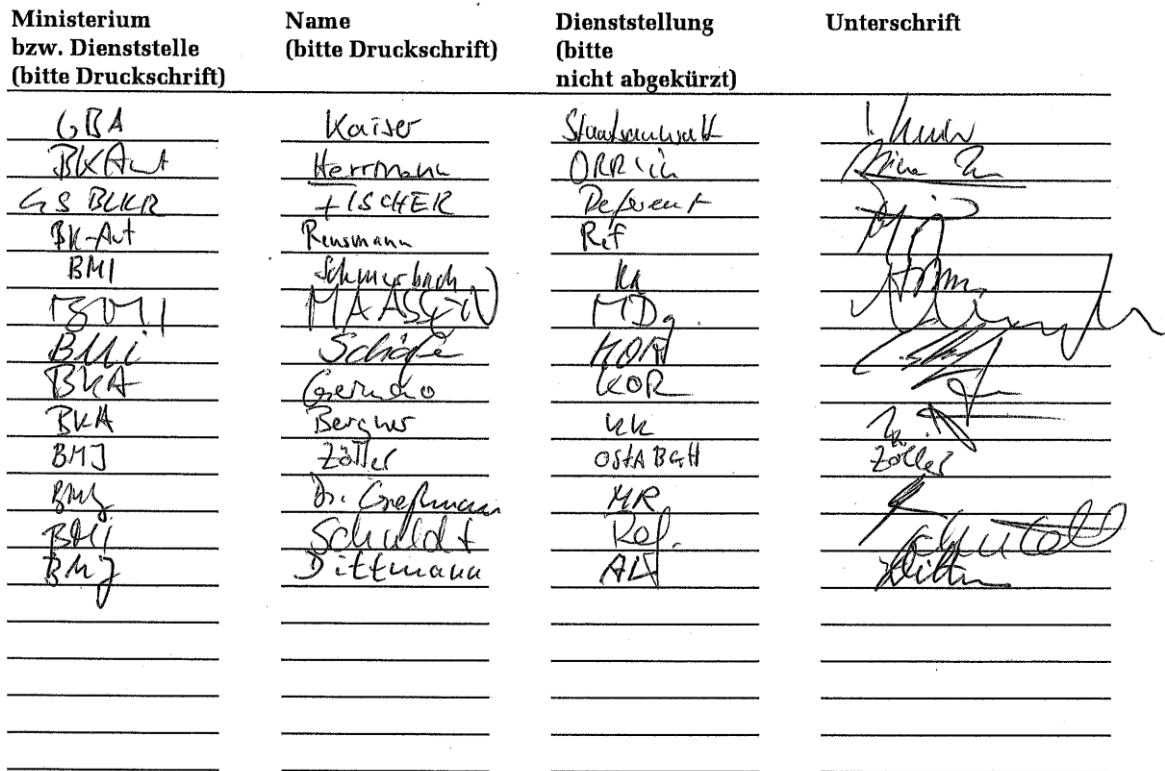 Ministerium bzw. Dienststelle (bitte Druckschrift) Name (bitte Druckschrift) Dienststellung (bitte nicht abgekürzt) Unterschrift
GBA Kaiser Staatsanwalt
BKAmt Herrmann ORR'in
GS BLKR FISCHER Referent
BK-Amt Rensmann Ref
BMI Schmerbach
BMI MAASSEN MDg.
BMI Schäfer KOR
BKA KOR
BKA Bergner KK
BMJ Zöller OStA BGH Zöller
BMJ Dr. Greßmann MR
BMI Schuldt Ref. Schuldt
BMJ Dittmann AL